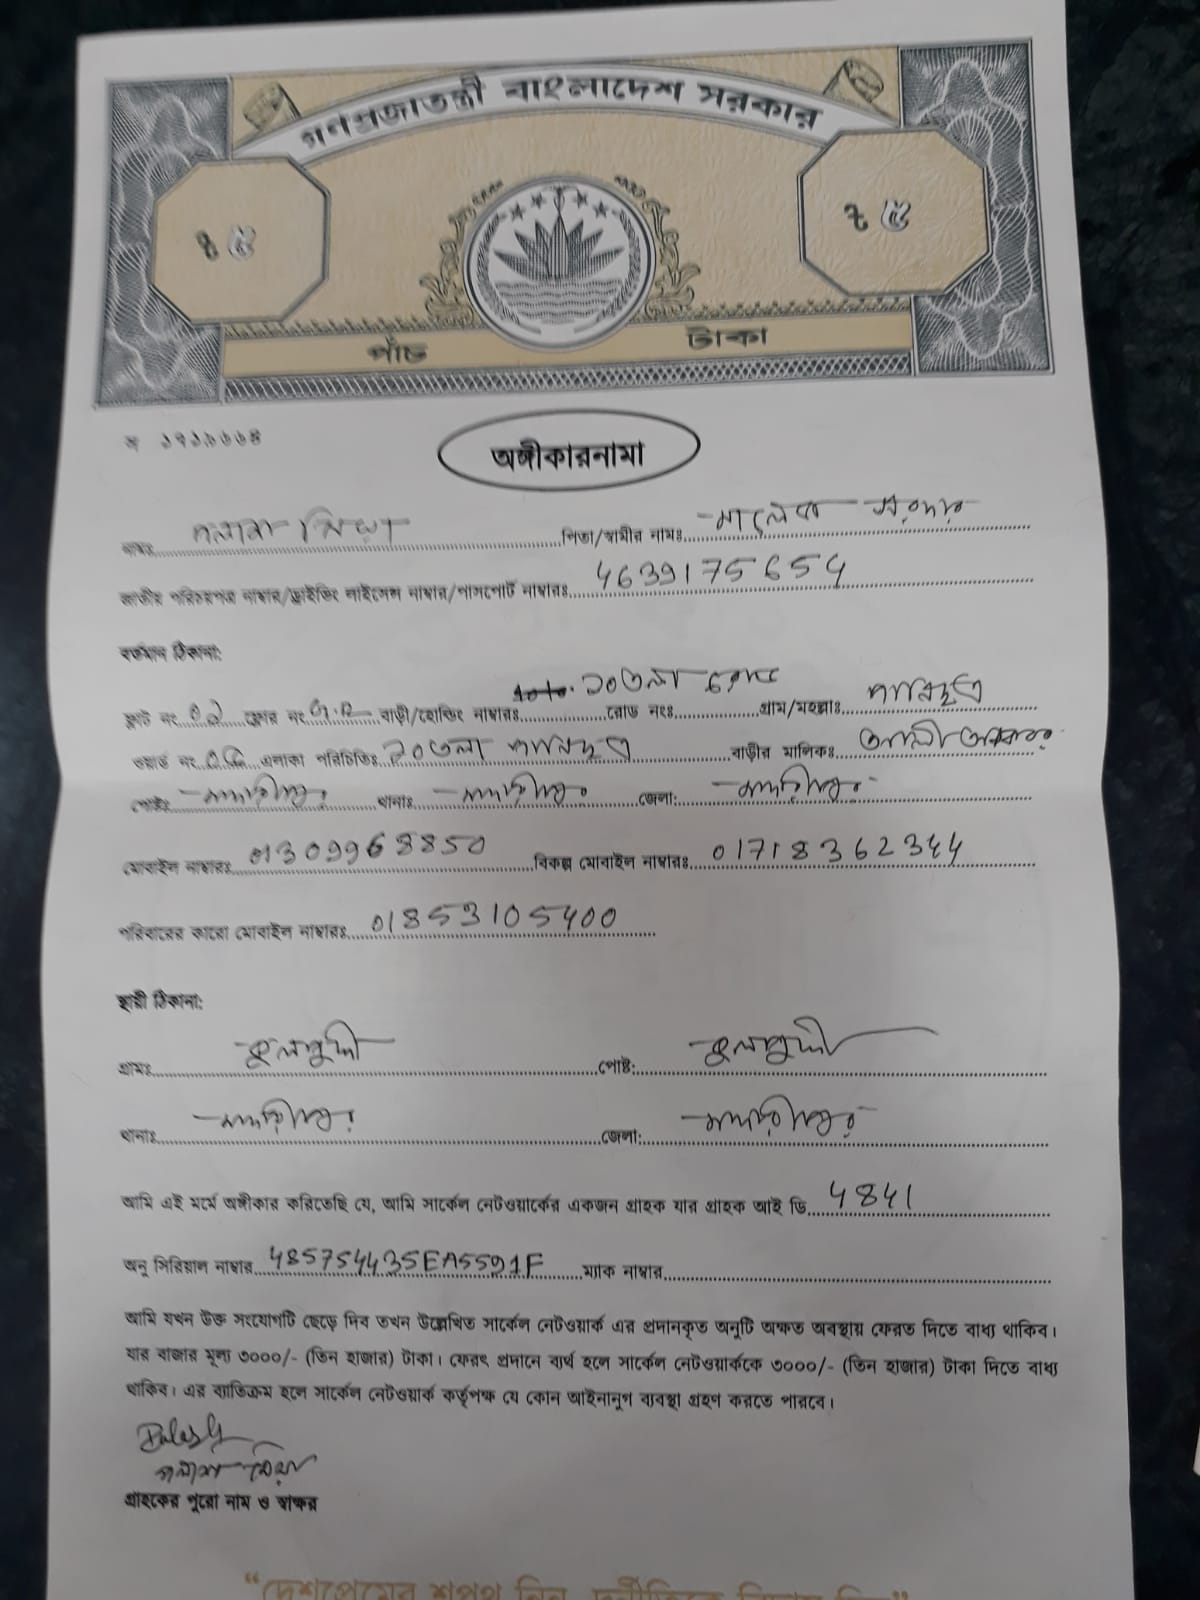 গণপ্রজাতন্ত্রী বাংলাদেশ সরকার
৳ ৫ ৳ ৫
পাঁচ টাকা
অঙ্গীকারনামা
নামঃ পলাশ মিয়া পিতা/স্বামীর নামঃ মালেক সরদার
জাতীয় পরিচয়পত্র নাম্বার/ড্রাইভিং লাইসেন্স নাম্বার/পাসপোর্ট নাম্বারঃ 4639175654
বর্তমান ঠিকানা:
ফ্লাট নং ফ্লোর নং বাড়ী/হোল্ডিং নাম্বারঃ ১০তলা রোড নংঃ গ্রাম/মহল্লাঃ
ওয়ার্ড নং ০৫ এলাকা পরিচিতিঃ ১০তলা বাড়ীর মালিকঃ
পোষ্টঃ মাদারীপুর থানাঃ মাদারীপুর জেলা: মাদারীপুর
মোবাইল নাম্বারঃ 01309968850 বিকল্প মোবাইল নাম্বারঃ 01718362344
পরিবারের কারো মোবাইল নাম্বারঃ 01853105400
স্থায়ী ঠিকানা:
গ্রামঃ কুলপদ্দী পোষ্ট: কুলপদ্দী
থানাঃ মাদারীপুর জেলা: মাদারীপুর
আমি এই মর্মে অঙ্গীকার করিতেছি যে, আমি সার্কেল নেটওয়ার্কের একজন গ্রাহক যার গ্রাহক আই ডি 4841
অনু সিরিয়াল নাম্বার 485754435EA5591F ম্যাক নাম্বার
আমি যখন উক্ত সংযোগটি ছেড়ে দিব তখন উল্লেখিত সার্কেল নেটওয়ার্ক এর প্রদানকৃত অনুটি অক্ষত অবস্থায় ফেরত দিতে বাধ্য থাকিব।
যার বাজার মূল্য ৩০০০/- (তিন হাজার) টাকা। ফেরৎ প্রদানে ব্যর্থ হলে সার্কেল নেটওয়ার্ককে ৩০০০/- (তিন হাজার) টাকা দিতে বাধ্য
থাকিব। এর ব্যতিক্রম হলে সার্কেল নেটওয়ার্ক কর্তৃপক্ষ যে কোন আইনানুগ ব্যবস্থা গ্রহণ করতে পারবে।
Palash
পলাশ মিয়া
গ্রাহকের পুরো নাম ও স্বাক্ষর